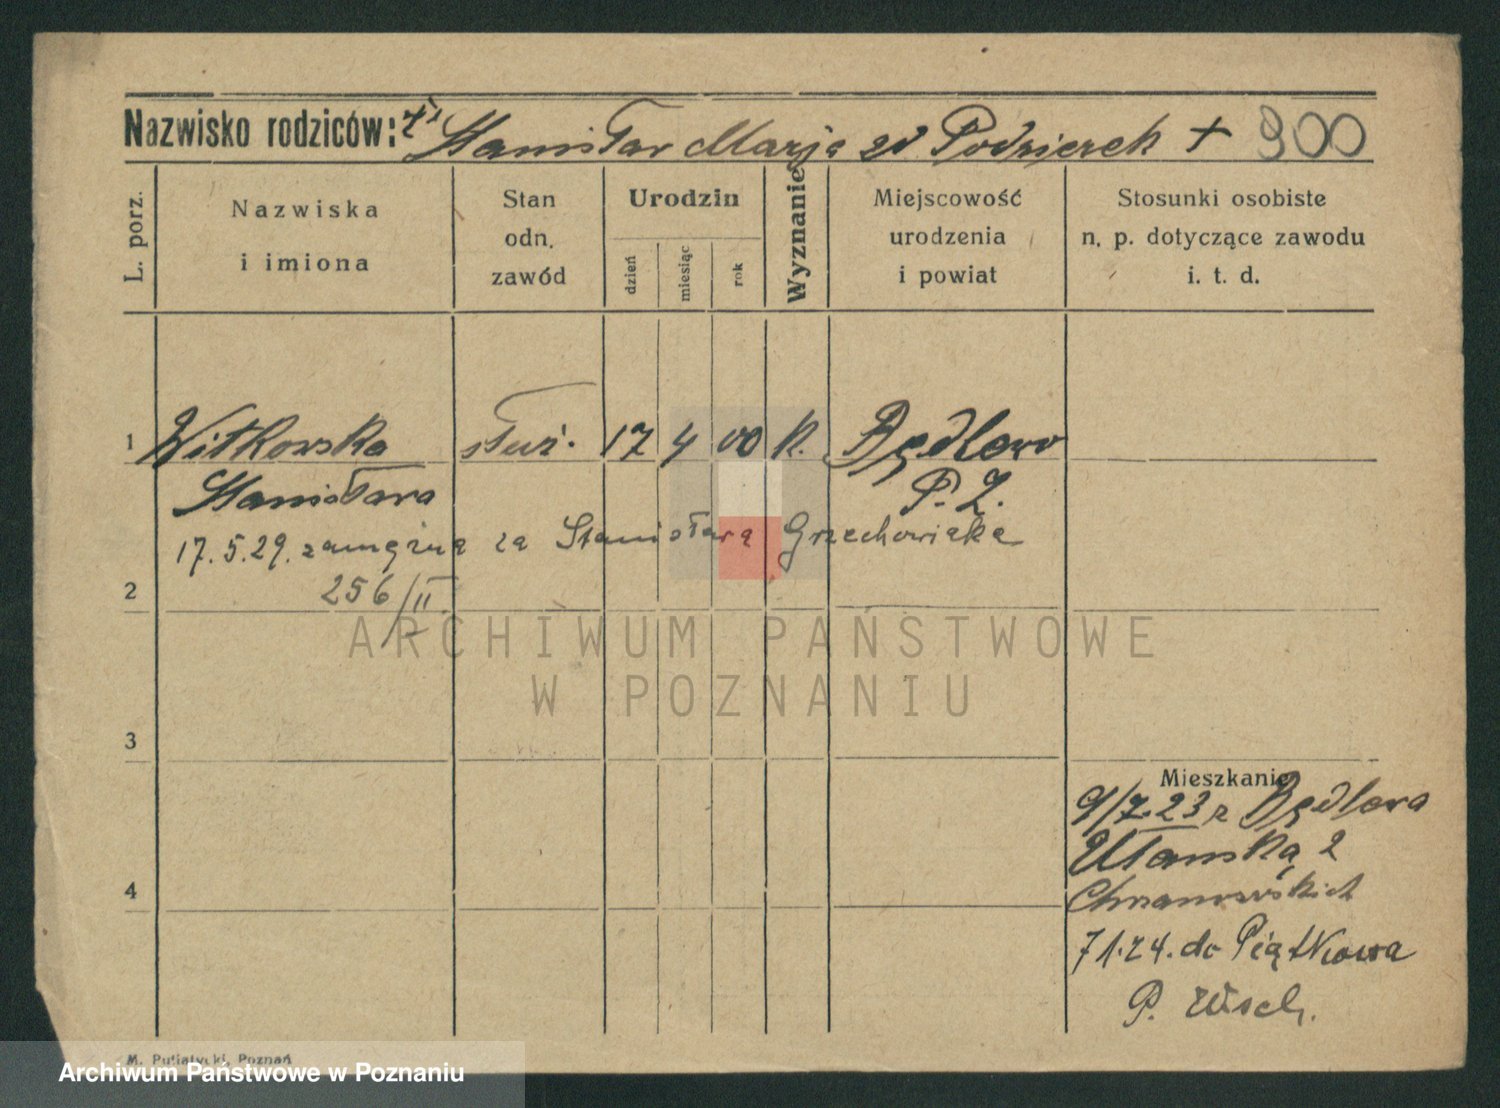 Nazwisko rodziców: Stanisław Marja zd Podzierek + 900
L. porz.
Nazwiska
i imiona
Stan
odn.
zawód
Urodzin
dzień
miesiąc
rok
Wyznanie
Miejscowość
urodzenia
i powiat
Stosunki osobiste
n. p. dotyczące zawodu
i. t. d.
1 Witkowska służ. 17 4 00 k. Będlewo
Stanisława P. Z.
17.5.29. zamężna za Stanisława Grzechowiaka
2 256/II
ARCHIWUM PAŃSTWOWE
W POZNANIU
3
Mieszkanie
9/7.23 z Będlewa
Ułańska 2
4 Chrzanowskich
71.24. do Piątkowa
P. Wsch.
M. Putiatycki, Poznań
Archiwum Państwowe w Poznaniu